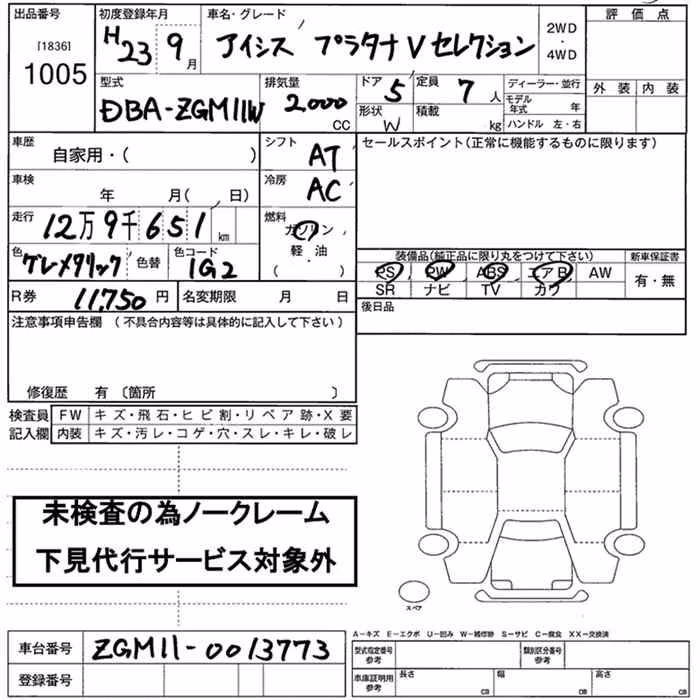 出品番号 初度登録年月 車名・グレード 評価点
[1836] H23 9月 アイシス プラタナ V セレクション 2WD・4WD
1005 外装 内装
型式 排気量 ドア 5 定員 7人 ディーラー・並行
DBA-ZGM11W 2000CC 形状 W 積載 kg モデル年式 年
ハンドル 左・右
車歴 自家用・( ) シフト AT セールスポイント(正常に機能するものに限ります)
車検 年 月( 、 日) 冷房 AC
走行 12万9千651km 燃料 ガソリン
軽・油
・
( )
色 グレメタリック 色替 色コード 1G2
装備品(純正品に限り丸をつけて下さい) 新車保証書
PS PW ABS エアB AW 有・無
SR ナビ TV カワ
R券 11,750円 名変期限 月 日 後日品
注意事項申告欄 (不具合内容等は具体的に記入して下さい)
修復歴 有 〔箇所 〕
検査員 FW キズ・飛石・ヒビ割・リペア跡・X要
記入欄 内装 キズ・汚レ・コゲ・穴・スレ・キレ・破レ
未検査の為ノークレーム
下見代行サービス対象外
スペア
車台番号 ZGM11-0013773
登録番号
A-キズ E-エクボ U-凹み W-補修跡 S-サビ C-腐食 XX-交換済
型式指定番号 参考 類別区分番号 参考
車庫証明用 参考 長さ CM 幅 CM 高さ CM